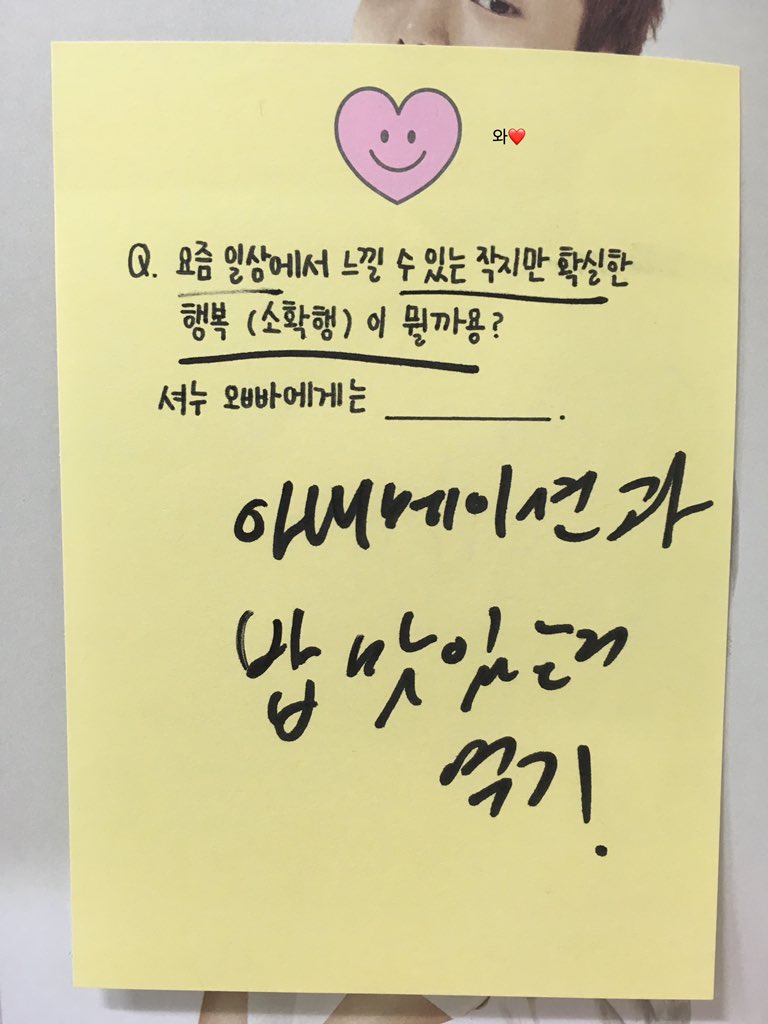 와❤️
Q. 요즘 일상에서 느낄 수 있는 작지만 확실한
행복 (소확행) 이 뭘까용?
셔누 오빠에게는 ___________.
애니메이션과
밥 맛있는거
먹기!